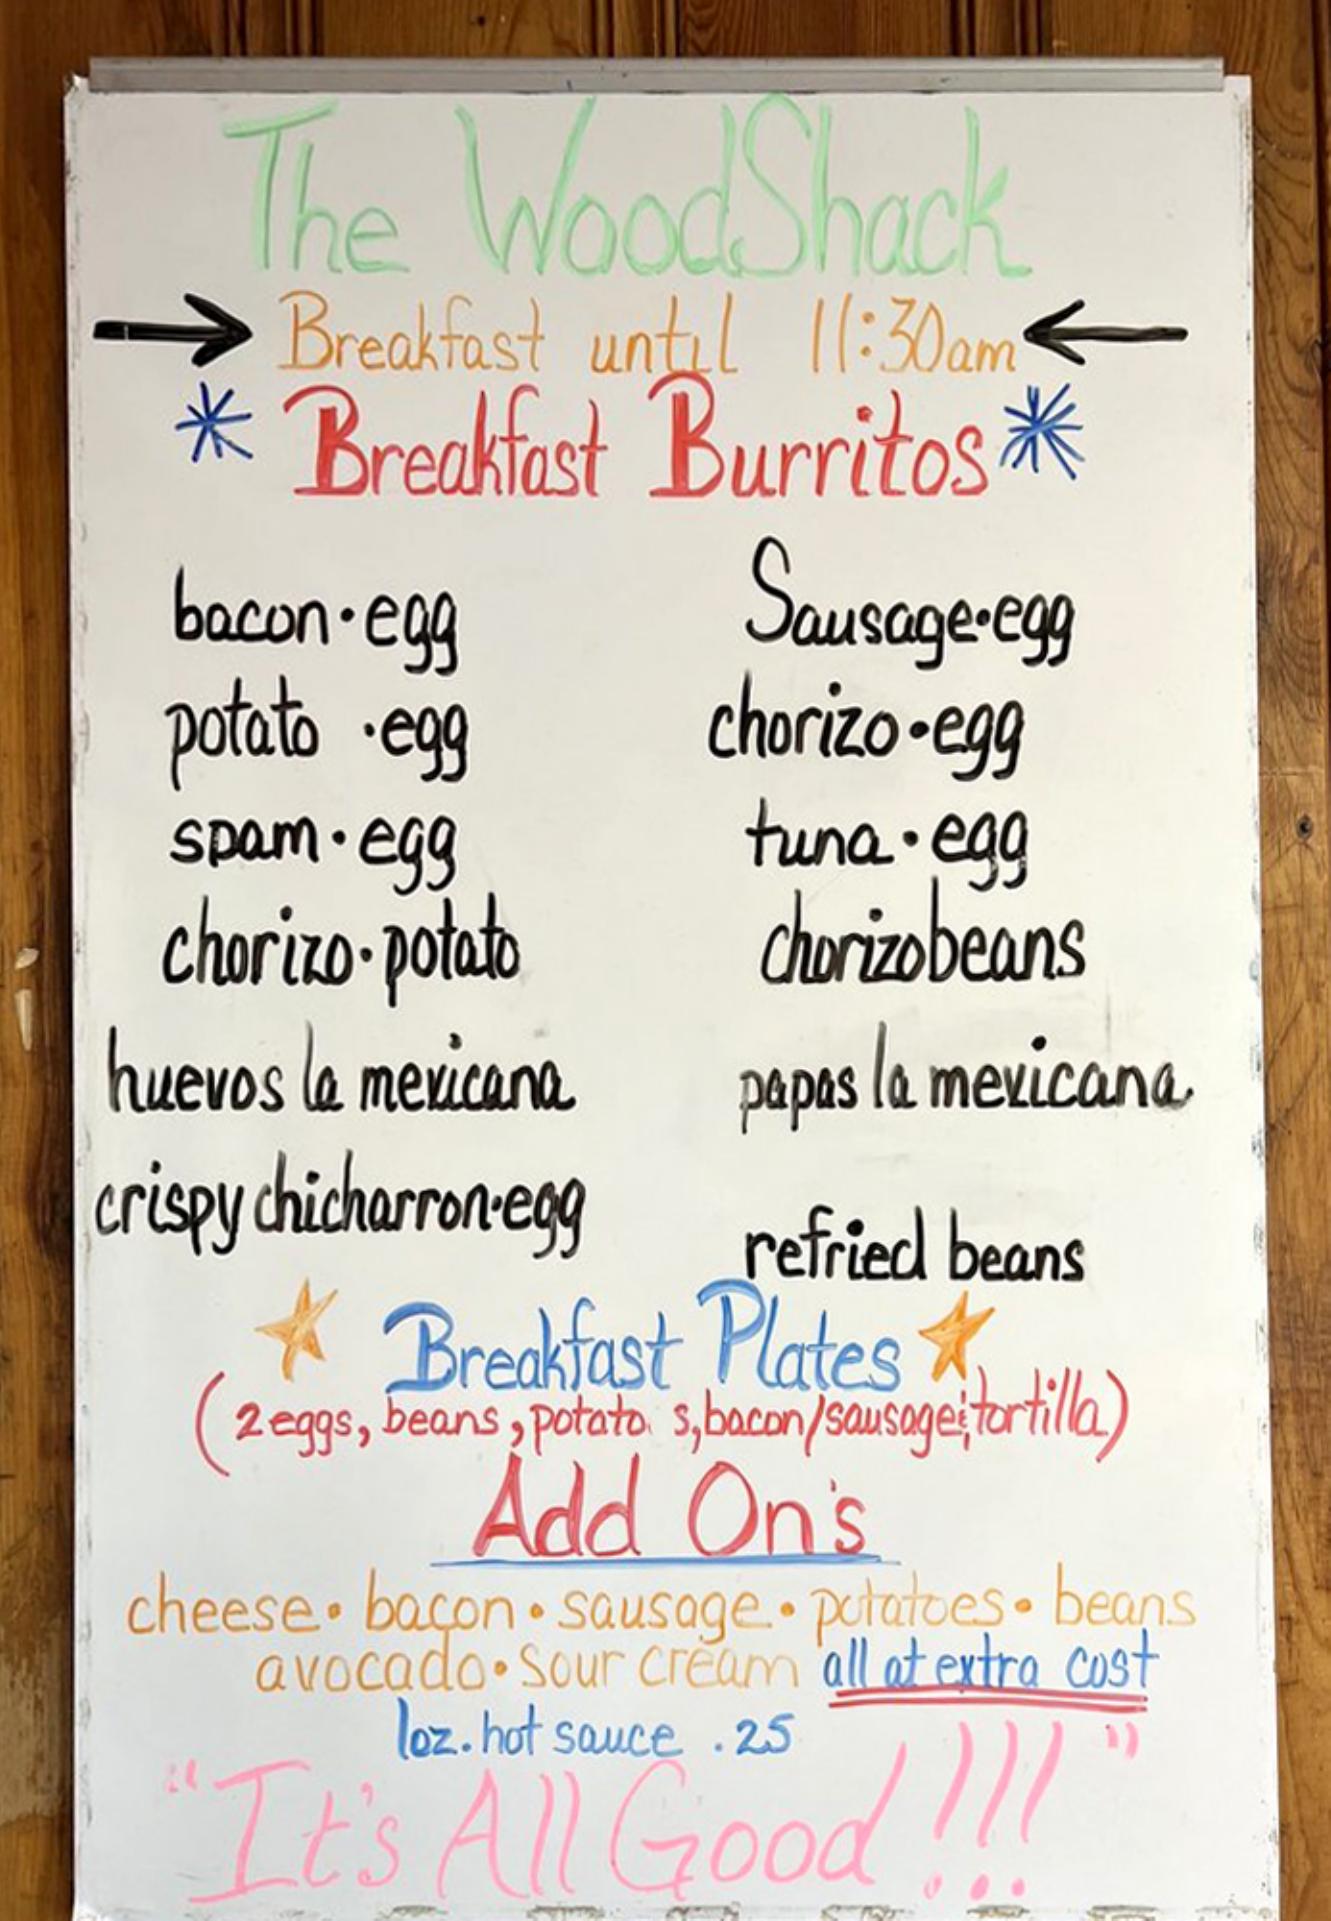 The WoodShack
Breakfast until 11:30am
Breakfast Burritos
bacon·egg
Sausage·egg
potato ·egg
chorizo·egg
spam·egg
tuna·egg
chorizo·potato
chorizobeans
huevos la mexicana
papas la mexicana
crispy chicharron·egg
refried beans
Breakfast Plates
(2 eggs, beans, potato s, bacon/sausage & tortilla)
Add On's
cheese · bacon · sausage · potatoes · beans
avocado · sour cream all at extra cost
1oz. hot sauce .25
"It's All Good!!!!"